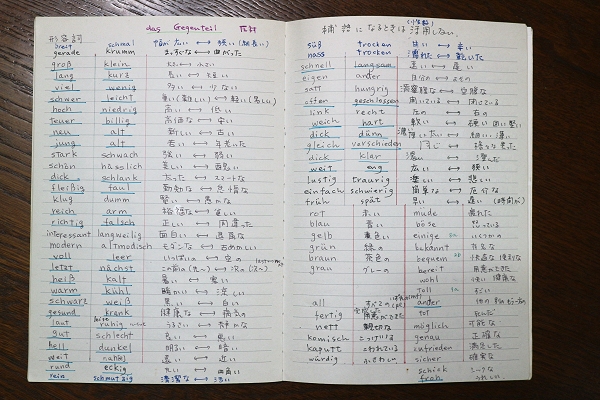 das Gegenteil 反対
形容詞
breit schmal 幅が広い ↔ 狭い(細長い)
gerade krumm まっすぐな ↔ 曲がった
groß klein 大きい ↔ 小さい
lang kurz 長い ↔ 短い
viel wenig 多い ↔ 少ない
schwer leicht 重い(難しい) ↔ 軽い(易しい)
hoch niedrig 高い ↔ 低い
teuer billig 高価な ↔ 安い
neu alt 新しい ↔ 古い
jung alt 若い ↔ 年老いた
stark schwach 強い ↔ 弱い
schön hässlich 美しい ↔
dick schlank 太った ↔ スマートな
fleißig faul 勤勉な ↔ 怠惰な
klug dumm 賢い ↔ 愚かな
reich arm 裕福な ↔ 貧しい
richtig falsch 正しい ↔ 間違った
interessant langweilig 面白い ↔
modern altmodisch モダンな ↔ 古めかしい
voll leer いっぱいの ↔ 空の
letzt nächst この前の(次へ) ↔ 次の
heiß kalt 暑い ↔ 寒い
warm kühl 暖かい ↔ 涼しい
schwarz weiß 黒い ↔ 白い
gesund krank 健康な ↔ 病気の
laut leise ruhig うるさい ↔ 静かな
gut schlecht 良い ↔ 悪い
hell dunkel 明るい ↔ 暗い
weit nahe 遠い ↔ 近い
rund eckig 丸い ↔ 四角い
rein schmutzig 清潔な ↔ 汚い
補語になるときは活用しない。
süß trocken 甘い ↔ 辛い
nass trocken 濡れた ↔ 乾いた
schnell langsam 速い ↔ 遅い
eigen ander 自分の ↔
satt hungrig 満腹な ↔ 空腹な
offen geschlossen 開いている ↔ 閉じている
link recht 左の ↔ 右の
weich hart 軟い ↔ 硬い
dick dünn 厚い ↔ 細い, 薄い
gleich verschieden 同じ ↔ 異なった
dick klar 濃い ↔ 澄んだ
weit eng 広い ↔ 狭い
lustig traurig 楽しい ↔ 悲しい
einfach schwierig 簡単な ↔ 厄介な
früh spät 早い ↔ 遅い(時間が)
rot 赤い müde 疲れた
blau 青い böse 怒っている
gelb 黄色い einige いくつかの
grün 緑の bekannt 有名な
braun 茶色の bequem 快適な 便利な
grau グレーの bereit 用意ができた
wohl 快い 健康な
toll すごい
all すべての ander 他の
fertig 用意ができた tot 死んだ
nett 親切な möglich 可能な
komisch こっけいな genau 正確な
kaputt こわれている zufrieden 満足した
würdig ふさわしい sicher 確実な
schick シックな
froh うれしい